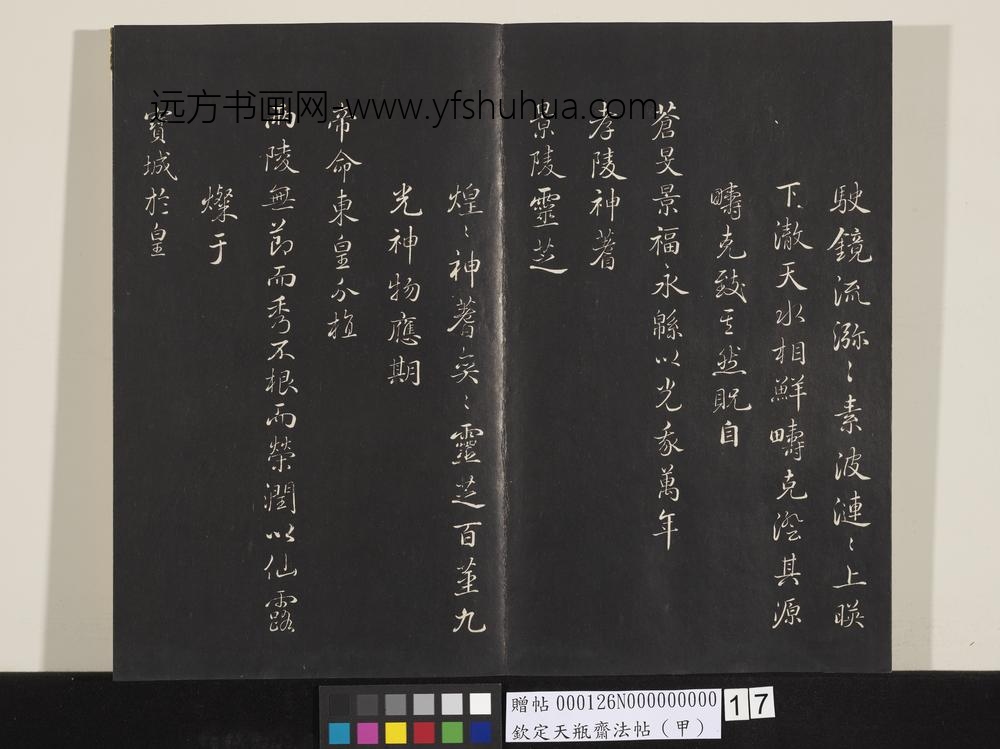 駛鏡流瀰〻素波漣〻上暎
下澈天水相鮮疇克澄其源
疇克致其然貺自
蒼旻景福永緜以光我萬年
孝陵神蓍
景陵靈芝
煌〻神蓍奕〻靈芝百莖九
光神物應期
帝命東皇分植
兩陵無節而秀不根而榮潤以仙露
燦于
寶城於皇
远方书画网-www.yfshuhua.com
贈帖 000126N000000000 17
欽定天瓶齋法帖（甲）